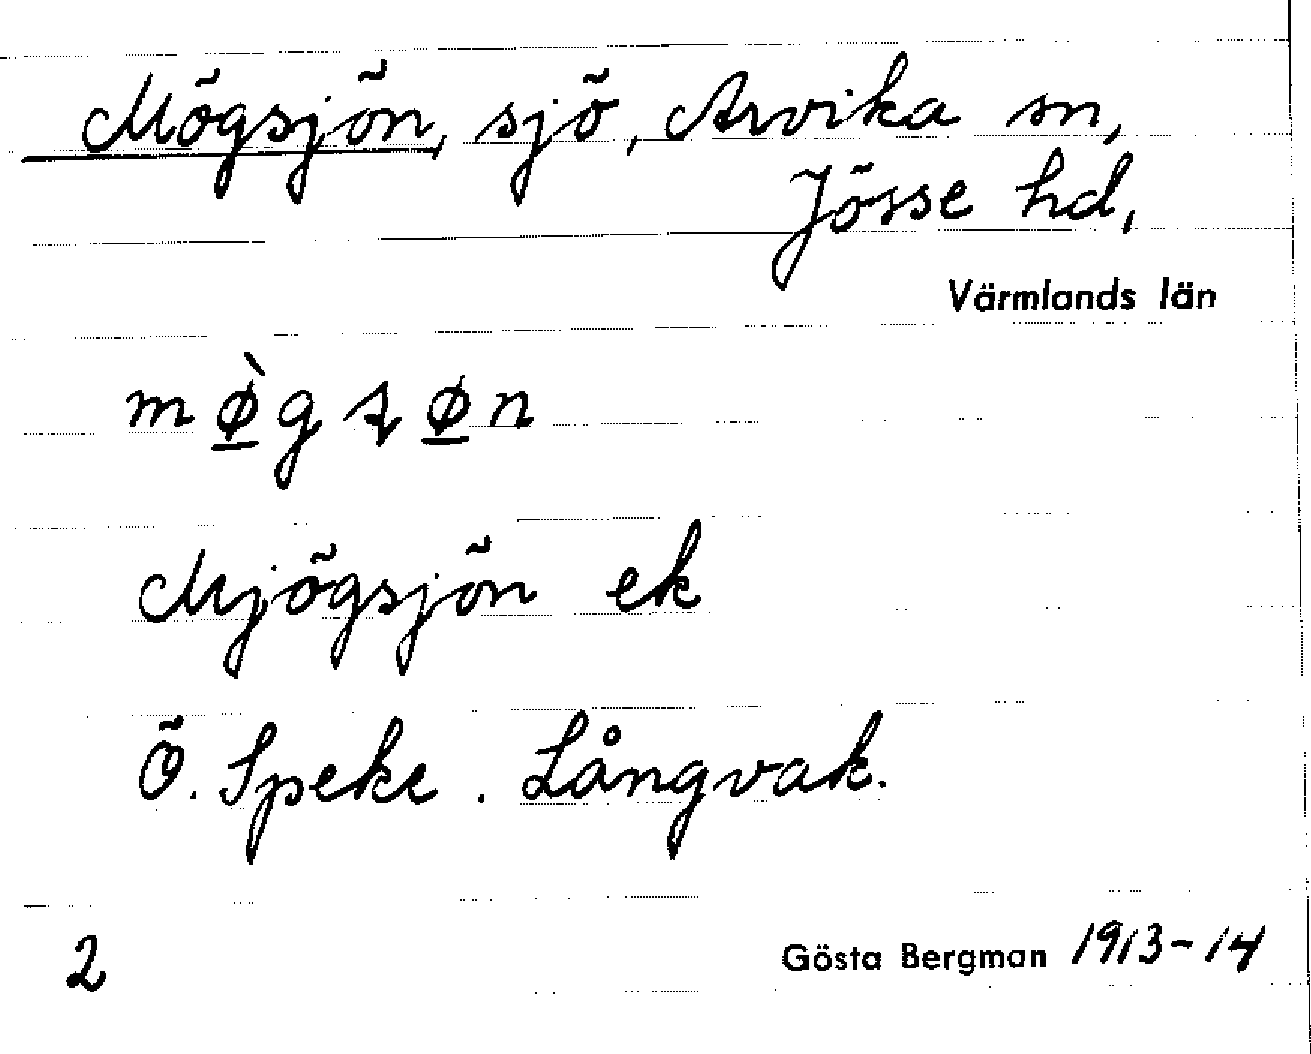 Mögsjön, sjö, Arvika sn,
Jösse hd,
Värmlands län
mø̲̀gʂø̲n
Mjögsjön ek
Ö. Speke. Långvak.
2
Gösta Bergman 1913-14